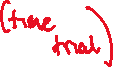 (time
trial)